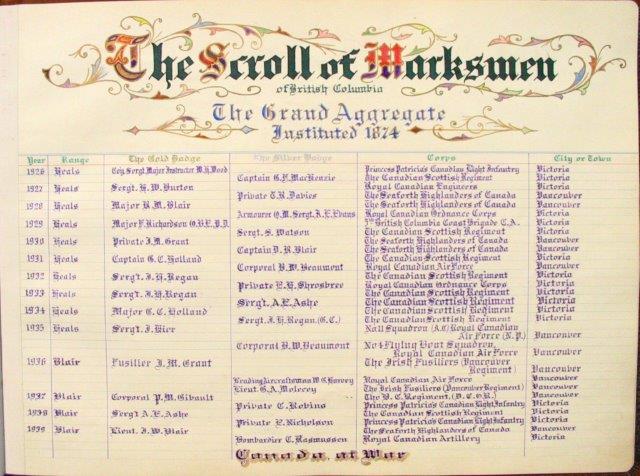 The Scroll of Marksmen
of British Columbia
The Grand Aggregate
Instituted 1874
Year Range The Gold Badge The Silver Badge Corps City or Town
1926 Heals Coy. Sergt. Major Instructor W.H. Wood Princess Patricia's Canadian Light Infantry Victoria
Captain G.F. MacKenzie The Canadian Scottish Regiment Victoria
1927 Heals Sergt. H.W. Burton Royal Canadian Engineers Victoria
Private T.R. Davies The Seaforth Highlanders of Canada Vancouver
1928 Heals Major R.M. Blair The Seaforth Highlanders of Canada Vancouver
Armourer Q.M. Sergt. A.E. Evans Royal Canadian Ordnance Corps Victoria
1929 Heals Major F. Richardson O.B.E., V.D. 5th British Columbia Coast Brigade C.A. Victoria
Sergt. S. Watson The Canadian Scottish Regiment Victoria
1930 Heals Private J.M. Grant The Seaforth Highlanders of Canada Vancouver
Captain D.R. Blair The Seaforth Highlanders of Canada Vancouver
1931 Heals Captain G.C. Holland The Canadian Scottish Regiment Victoria
Corporal B.W. Beaumont Royal Canadian Air Force Vancouver
1932 Heals Sergt. J.H. Regan The Canadian Scottish Regiment Victoria
Private E.H. Shrosbree Royal Canadian Ordnance Corps Victoria
1933 Heals Sergt. J.H. Regan The Canadian Scottish Regiment Victoria
Sergt. A.E. Ashe The Canadian Scottish Regiment Victoria
1934 Heals Major G.C. Holland The Canadian Scottish Regiment Victoria
Sergt. J.H. Regan. (G.C.) The Canadian Scottish Regiment Victoria
1935 Heals Sergt. J. Hier No.11 Squadron (A.C.) Royal Canadian
Air Force (N.P.) Vancouver
Corporal B.W. Beaumont No 4 Flying Boat Squadron,
Royal Canadian Air Force Vancouver
1936 Blair Fusilier J.M. Grant The Irish Fusiliers (Vancouver
Regiment) Vancouver
Leading Aircraftsman W.G. Harvey Royal Canadian Air Force Vancouver
Lieut. G.A. The Irish Fusiliers (Vancouver Regiment) Vancouver
1937 Blair Corporal P.M. Gibault The B.C. Regiment, (D.C.O.R.) Vancouver
Private C. Robins Princess Patricia's Canadian Light Infantry Victoria
1938 Blair Sergt A.E. Ashe The Canadian Scottish Regiment Victoria
Private E. Nicholson Princess Patricia's Canadian Light Infantry Victoria
1939 Blair Lieut. J.W. Blair The Seaforth Highlanders of Canada Vancouver
Bombardier C. Rasmussen Royal Canadian Artillery Victoria
Canada at War